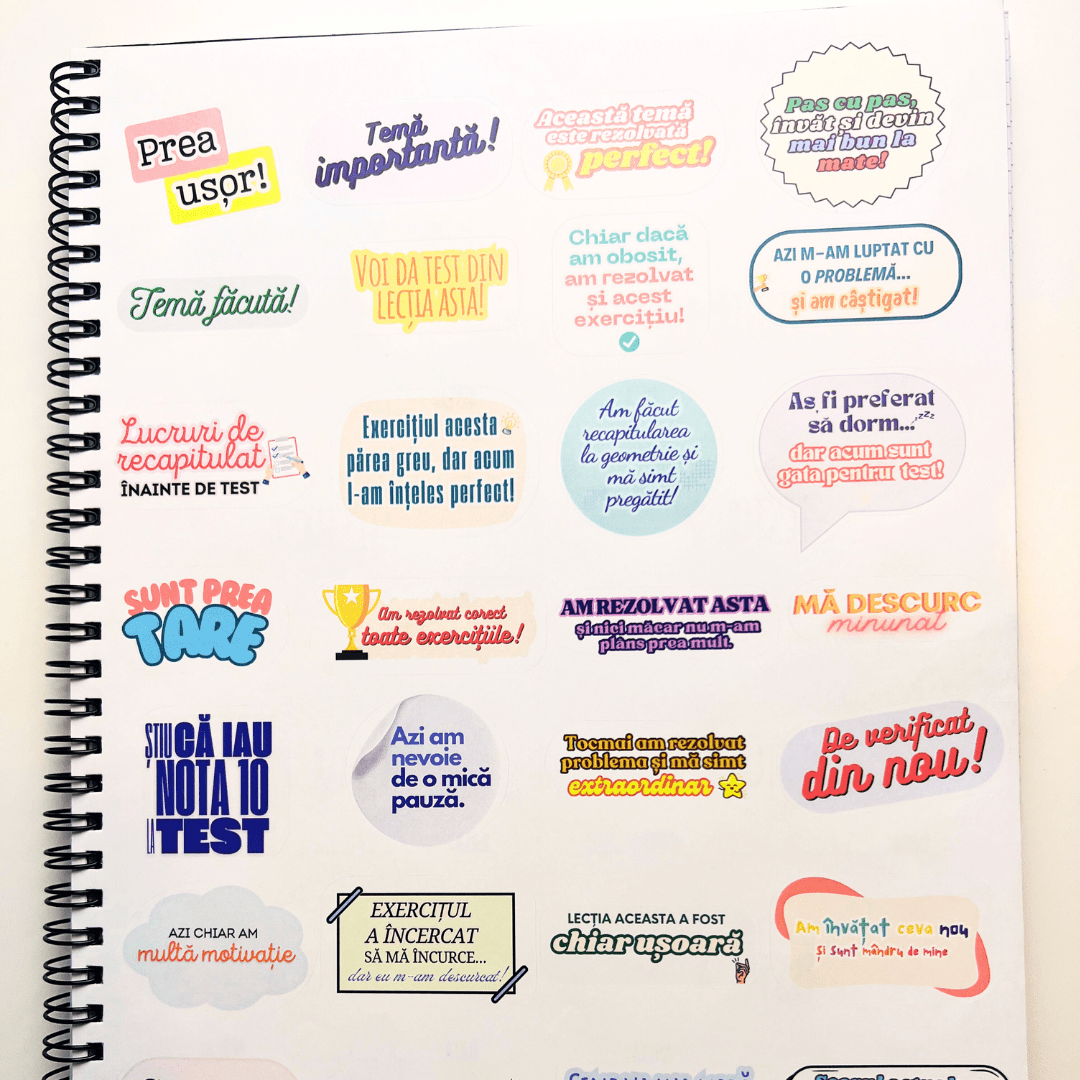 Prea
ușor!
Temă
importantă!
Această temă
este rezolvată
perfect!
Pas cu pas,
învăt și devin
mai bun la
mate!
Temă făcută!
VOI DA TEST DIN
LECȚIA ASTA!
Chiar dacă
am obosit,
am rezolvat
și acest
exercițiu!
AZI M-AM LUPTAT CU
O PROBLEMĂ...
și am câștigat!
Lucruri de
recapitulat
ÎNAINTE DE TEST
Exercițiul acesta
părea greu, dar acum
l-am înțeles perfect!
Am făcut
recapitularea
la geometrie și
mă simt
pregătit!
Aș fi preferat
să dorm...zzz
dar acum sunt
gata pentru test!
SUNT PREA
TARE
Am rezolvat corect
toate exercițiile!
AM REZOLVAT ASTA
și nici măcar nu m-am
plâns prea mult.
MĂ DESCURC
minunat
ȘTIU CĂ IAU
NOTA 10
LA TEST
Azi am
nevoie
de o mică
pauză.
Tocmai am rezolvat
problema și mă simt
extraordinar
De verificat
din nou!
AZI CHIAR AM
multă motivație
EXERCIȚUL
A ÎNCERCAT
SĂ MĂ ÎNCURCE...
dar eu m-am descurcat!
LECȚIA ACEASTA A FOST
chiar ușoară
Am învățat ceva nou
și sunt mândru de mine